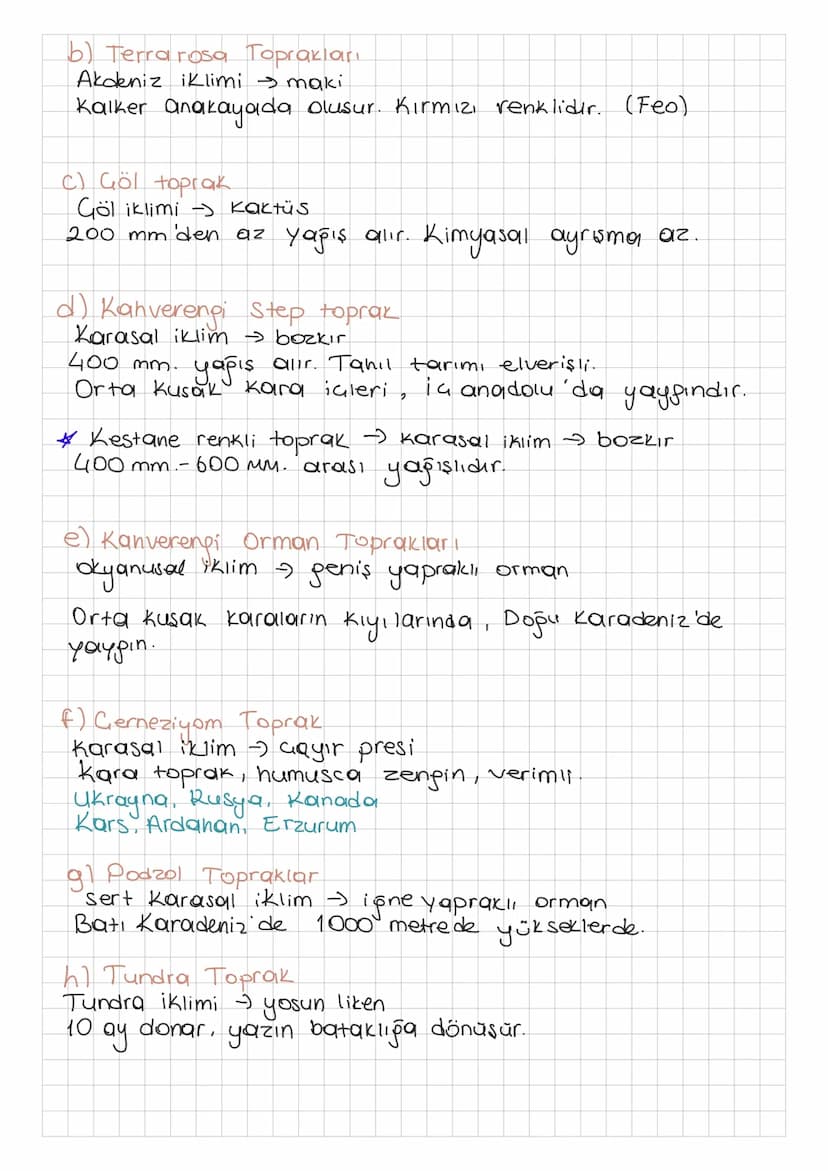 b) Terrarosa Toprakları
Akdeniz iklimi → maki
Kalker anakayada oluşur. Kırmızı renklidir. (Feo)
c) Göl toprak
Göl iklimi → kaktüs
200 mm'den az yağış alır. Kimyasal ayrışma az.
d) Kahverengi Step toprak
Karasal iklim → bozkır
400 mm. yağış alır. Tahıl tarımı elverişli.
Orta Kuşak kara içleri, iç anadolu'da yaygındır.
* Kestane renkli toprak → karasal iklim → bozkır
400 mm.- 600 mm. arası yağışlıdır.
e) Kahverengi Orman Toprakları
Okyanusal iklim → geniş yapraklı orman
Orta kuşak karaların kıyılarında, Doğu Karadeniz'de
yaygın.
f) Çerneziyom Toprak
Karasal iklim → çayır presi
Kara toprak, humusca zengin, verimli.
Ukrayna, Rusya, Kanada
Kars, Ardahan, Erzurum
g) Podzol Topraklar
Sert Karasal iklim → iğne yapraklı orman
Batı Karadeniz'de 1000 metrede yükseklerde.
h) Tundra Toprak
Tundra iklimi → yosun liken
10 ay donar, yazın bataklığa dönüşür.